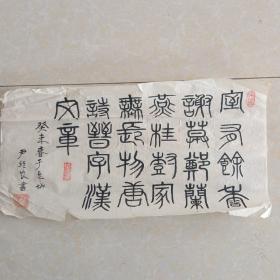 室有餘香
謝草鄭蘭
燕桂樹家
無長物唐
詩晉字漢
文章
癸未春于
書